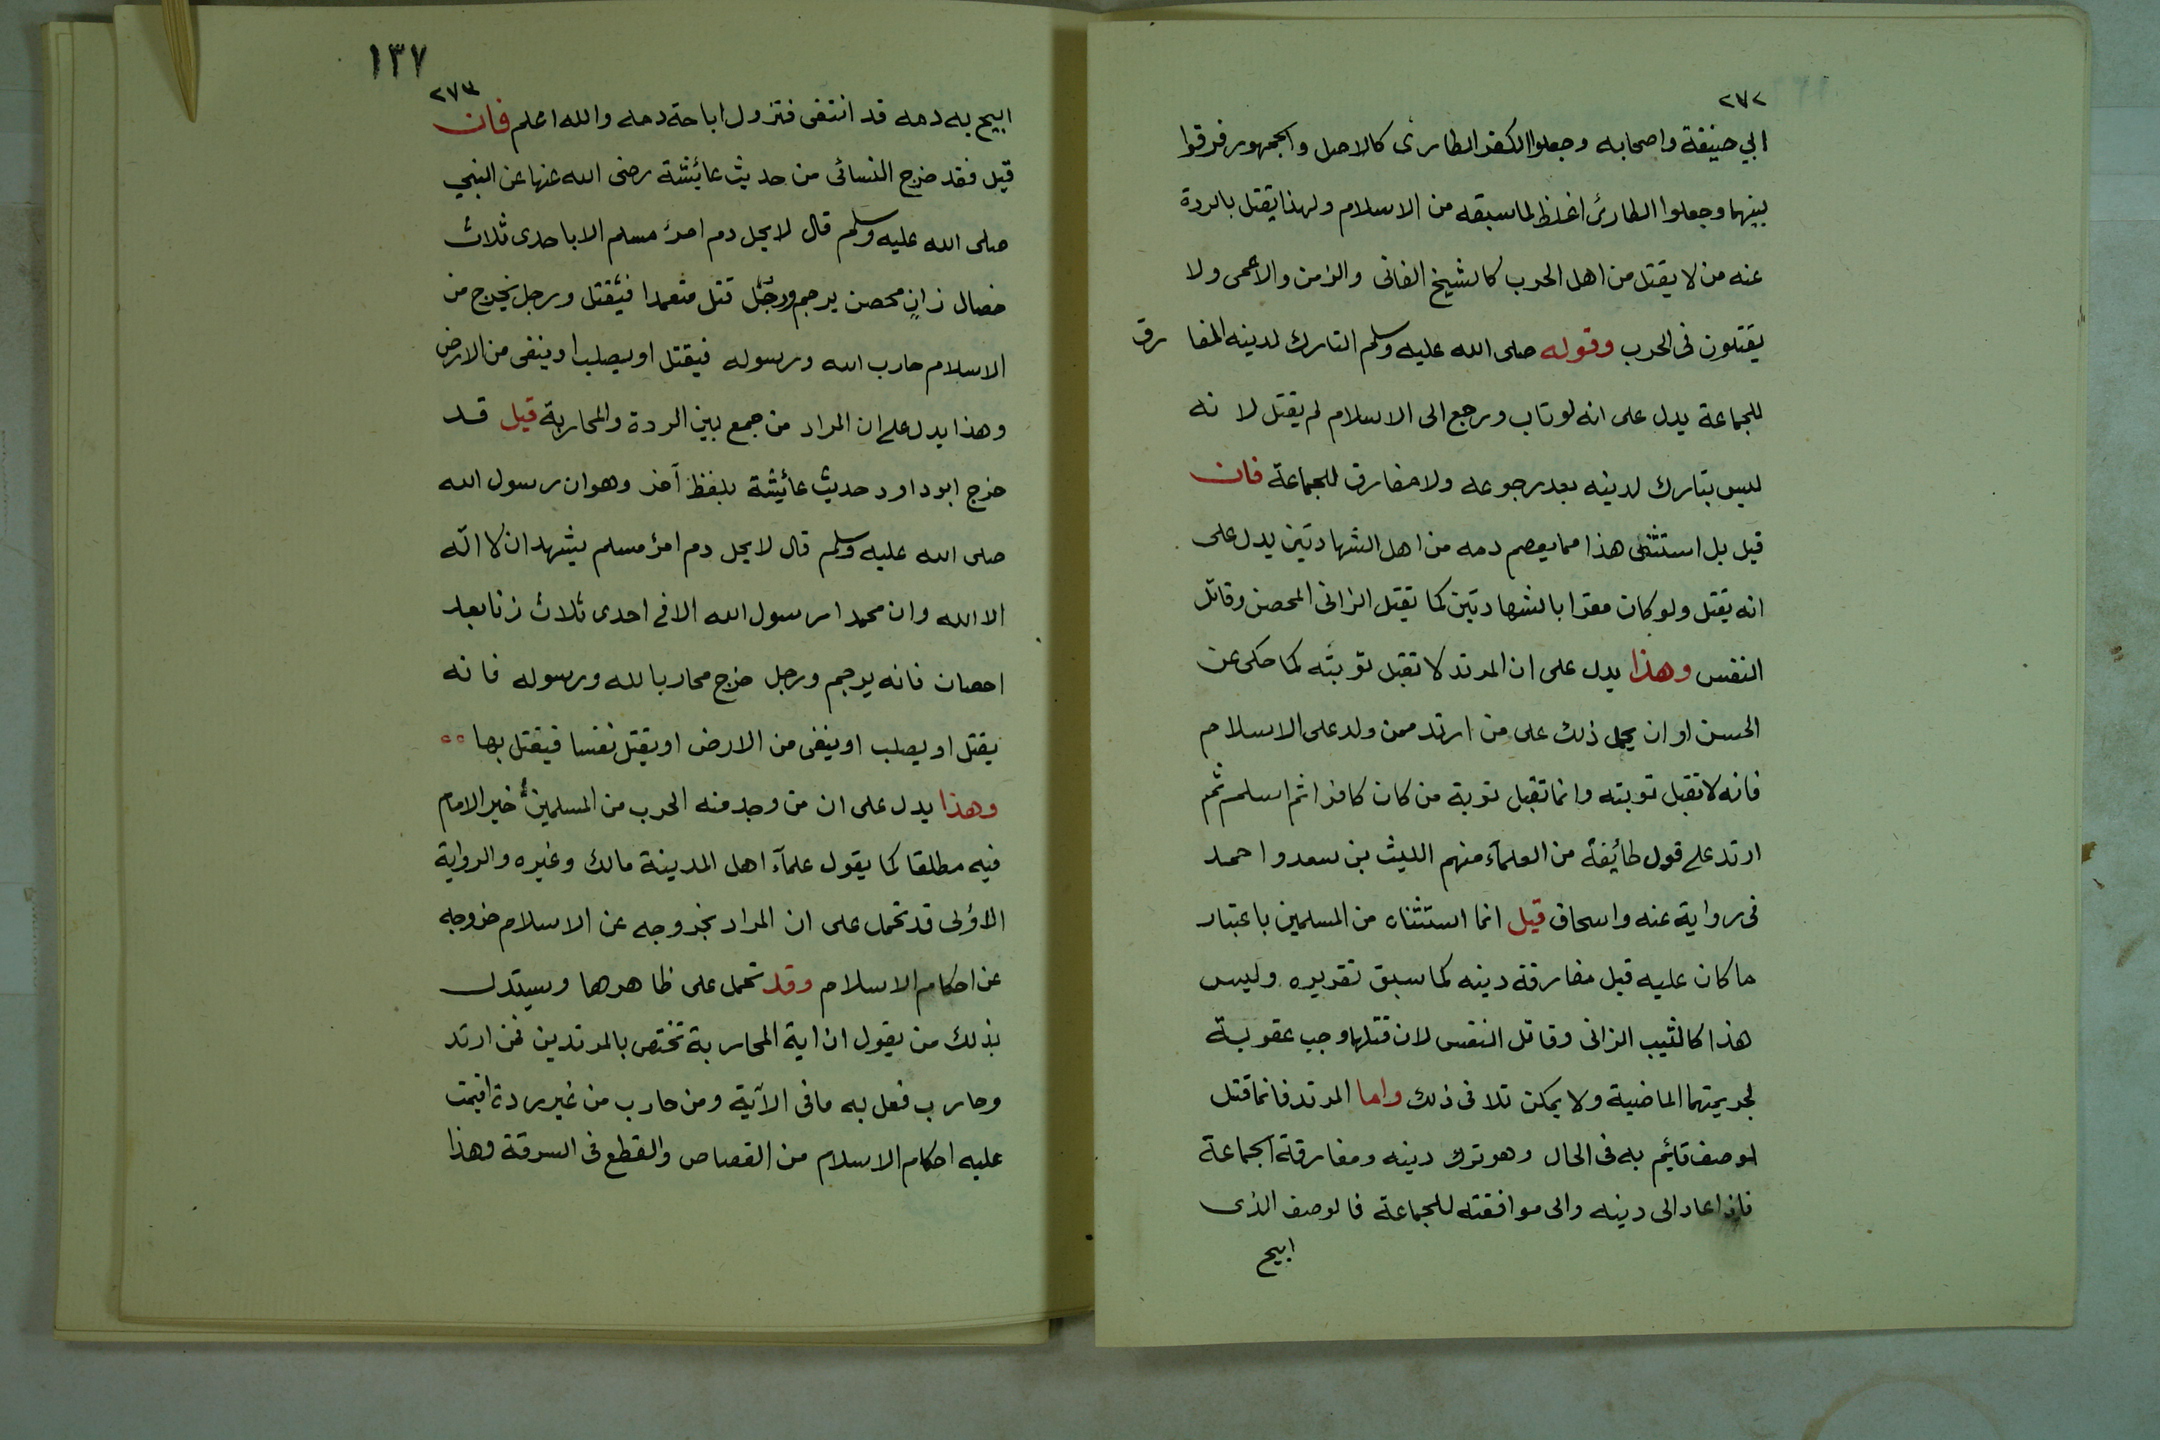 ٢٧٢
ابي حنيفة واصحابه وجعلوا الكفر الطارئ كالاصل والجمهور فرقوا
بينهما وجعلوا الطارئ اغلظ لما سبقه من الاسلام ولهذا يقتل بالردة
عنه من لا يقتل من اهل الحرب كالشيخ الفانى والزمن والاعمى ولا
يقتلون فى الحرب وقوله صلى الله عليه وسلم التارك لدينه المفارق
للجماعة يدل على انه لو تاب ورجع الى الاسلام لم يقتل لا نه
ليس بتارك لدينه بعد رجوعه ولا مفارق للجماعة فان
قيل بل استثنى هذا مما يعصم دمه من اهل الشهادتين يدل على
انه يقتل ولو كان مقرا بالشهادتين كما تقتل الزانى المحصن وقاتل
النفس وهذا يدل على ان المرتد لا تقبل توبته كما حكى عن
الحسن او ان يحمل ذلك على من ارتد ممن ولد على الاسلام
فانه لا تقبل توبته وانما تقبل توبة من كان كافرا ثم اسلم ثم
ارتد على قول طائفة من العلمآء منهم الليث بن سعد واحمد
فى رواية عنه واسحاق قيل انما استثناه من المسلمين باعتبار
ما كان عليه قبل مفارقة دينه كما سبق تقريره وليس
هذا كالثيب الزانى وقاتل النفس لان قتلهما وجب عقوبة
لجريمتهما الماضية ولا يمكن تلا فى ذلك واما المرتد فانما قتل
لوصف قائم به فى الحال وهو ترك دينه ومفارقة الجماعة
فاذا عاد الى دينه والى موافقته للجماعة فالوصف الذى
ابيح
١٣٧
٢٧٣
ابيح به دمه قد انتفى فتزول اباحة دمه والله اعلم فان
قيل فقد خرج النسائى من حديث عائشة رضى الله عنها عن النبي
صلى الله عليه وسلم قال لا يحل دم امرئ مسلم الا باحدى ثلاث
خصال زان محصن يرجم ورجل قتل متعمدا فيقتل ورجل يخرج من
الاسلام حارب الله ورسوله فيقتل او يصلب او ينفى من الارض
وهذا يدل على ان المراد من جمع بين الردة والمحاربة قيل قد
خرج ابو داود حديث عائشة بلفظ آخر وهو ان رسول الله
صلى الله عليه وسلم قال لا يحل دم امرئ مسلم يشهد ان لا اله
الا الله وان محمدا رسول الله الا فى احدى ثلاث زنا بعد
احصان فانه يرجم ورجل خرج محاربا لله ورسوله فا نه
يقتل او يصلب او ينفى من الارض او يقتل نفسا فيقتل بها
وهذا يدل على ان من وجد منه الحرب من المسلمين خير الامام
فيه مطلقا كما يقول علمآء اهل المدينة مالك وغيره والرواية
الاولى قد تحمل على ان المراد بخروجه عن الاسلام خروجه
عن احكام الاسلام وقد تحمل على ظاهرها ويستدل
بذلك من يقول ان اية المحاربة تختص بالمرتدين فمن ارتد
وحارب فعل به ما فى الآية ومن حارب من غير ردة اقيمت
عليه احكام الاسلام من القصاص والقطع فى السرقة وهذا